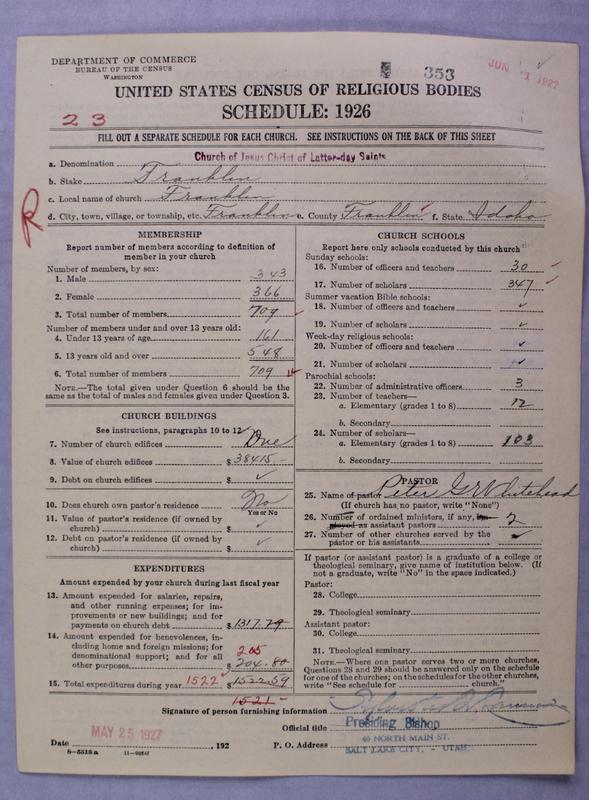 DEPARTMENT OF COMMERCE
BUREAU OF THE CENSUS
WASHINGTON
353
JUN 1 1927
UNITED STATES CENSUS OF RELIGIOUS BODIES
SCHEDULE: 1926
23
FILL OUT A SEPARATE SCHEDULE FOR EACH CHURCH. SEE INSTRUCTIONS ON THE BACK OF THIS SHEET
a. Denomination Church of Jesus Christ of Latter-day Saints
b. Stake Franklin
c. Local name of church Franklin
R
d. City, town, village, or township, etc. Franklin e. County Franklin f. State Idaho
MEMBERSHIP
Report number of members according to definition of member in your church
Number of members, by sex:
1. Male 343
2. Female 366
3. Total number of members 709
Number of members under and over 13 years old:
4. Under 13 years of age 161
5. 13 years old and over 548
6. Total number of members 709
NOTE.—The total given under Question 6 should be the same as the total of males and females given under Question 3.
CHURCH BUILDINGS
See instructions, paragraphs 10 to 12
7. Number of church edifices One
8. Value of church edifices $38415-
9. Debt on church edifices $ ✓
10. Does church own pastor's residence No
Yes or No
11. Value of pastor's residence (if owned by church) $ ✓
12. Debt on pastor's residence (if owned by church) $ ✓
EXPENDITURES
Amount expended by your church during last fiscal year
13. Amount expended for salaries, repairs, and other running expenses; for improvements or new buildings; and for payments on church debt $1317.79
14. Amount expended for benevolences, including home and foreign missions; for denominational support; and for all other purposes 205 $204.80
15. Total expenditures during year 1522 $1522.59
1521-
CHURCH SCHOOLS
Report here only schools conducted by this church
Sunday schools:
16. Number of officers and teachers 30
17. Number of scholars 347
Summer vacation Bible schools:
18. Number of officers and teachers ✓
19. Number of scholars ✓
Week-day religious schools:
20. Number of officers and teachers ✓
21. Number of scholars ✓
Parochial schools:
22. Number of administrative officers 3
23. Number of teachers—
a. Elementary (grades 1 to 8) 12
b. Secondary
24. Number of scholars—
a. Elementary (grades 1 to 8) 103
b. Secondary
PASTOR
25. Name of pastor Peter G Whitehead
(If church has no pastor, write "None")
26. Number of ordained ministers, if any, as assistant pastors 2
27. Number of other churches served by the pastor or his assistants ✓
If pastor (or assistant pastor) is a graduate of a college or theological seminary, give name of institution below. (If not a graduate, write "No" in the space indicated.)
Pastor:
28. College
29. Theological seminary
Assistant pastor:
30. College
31. Theological seminary
NOTE.—Where one pastor serves two or more churches, Questions 28 and 29 should be answered only on the schedule for one of the churches; on the schedules for the other churches, write "See schedule for church."
Signature of person furnishing information
Official title Presiding Bishop
MAY 25 1927
Date , 192 P. O. Address 40 NORTH MAIN ST.
SALT LAKE CITY, - UTAH
8-5518a